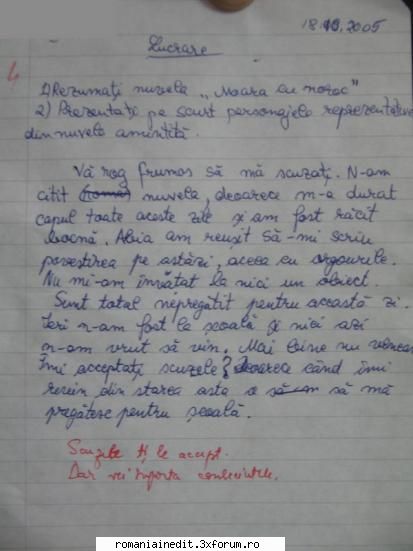 18.10.2005
Lucrare
4
1) Rezumați nuvela „Moara cu noroc"
2) Prezentați pe scurt personajele reprezentative
din nuvela amintită.
Vă rog frumos să mă scuzați. N-am
citit nuvela, deoarece m-a durat
capul toate aceste zile și am fost răcit
bocnă. Abia am reușit să-mi scriu
povestirea pe astăzi, aceea cu
Nu mi-am învățat la nici un obiect.
Sunt total nepregătit pentru această zi.
Ieri n-am fost la școală și nici azi
n-am vrut să vin. Mai bine nu veneam
Îmi acceptați scuzele? deoarece când îmi
revin din starea asta o să să mă
pregătesc pentru școală.
Scuzele ți le accept.
Dar vei suporta consecințele.
romaniainedit.3xforum.ro